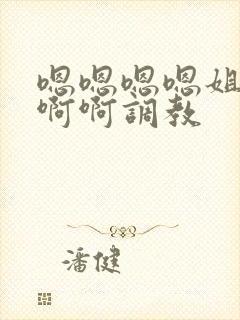 嗯嗯嗯嗯姐
啊啊調教
潘健